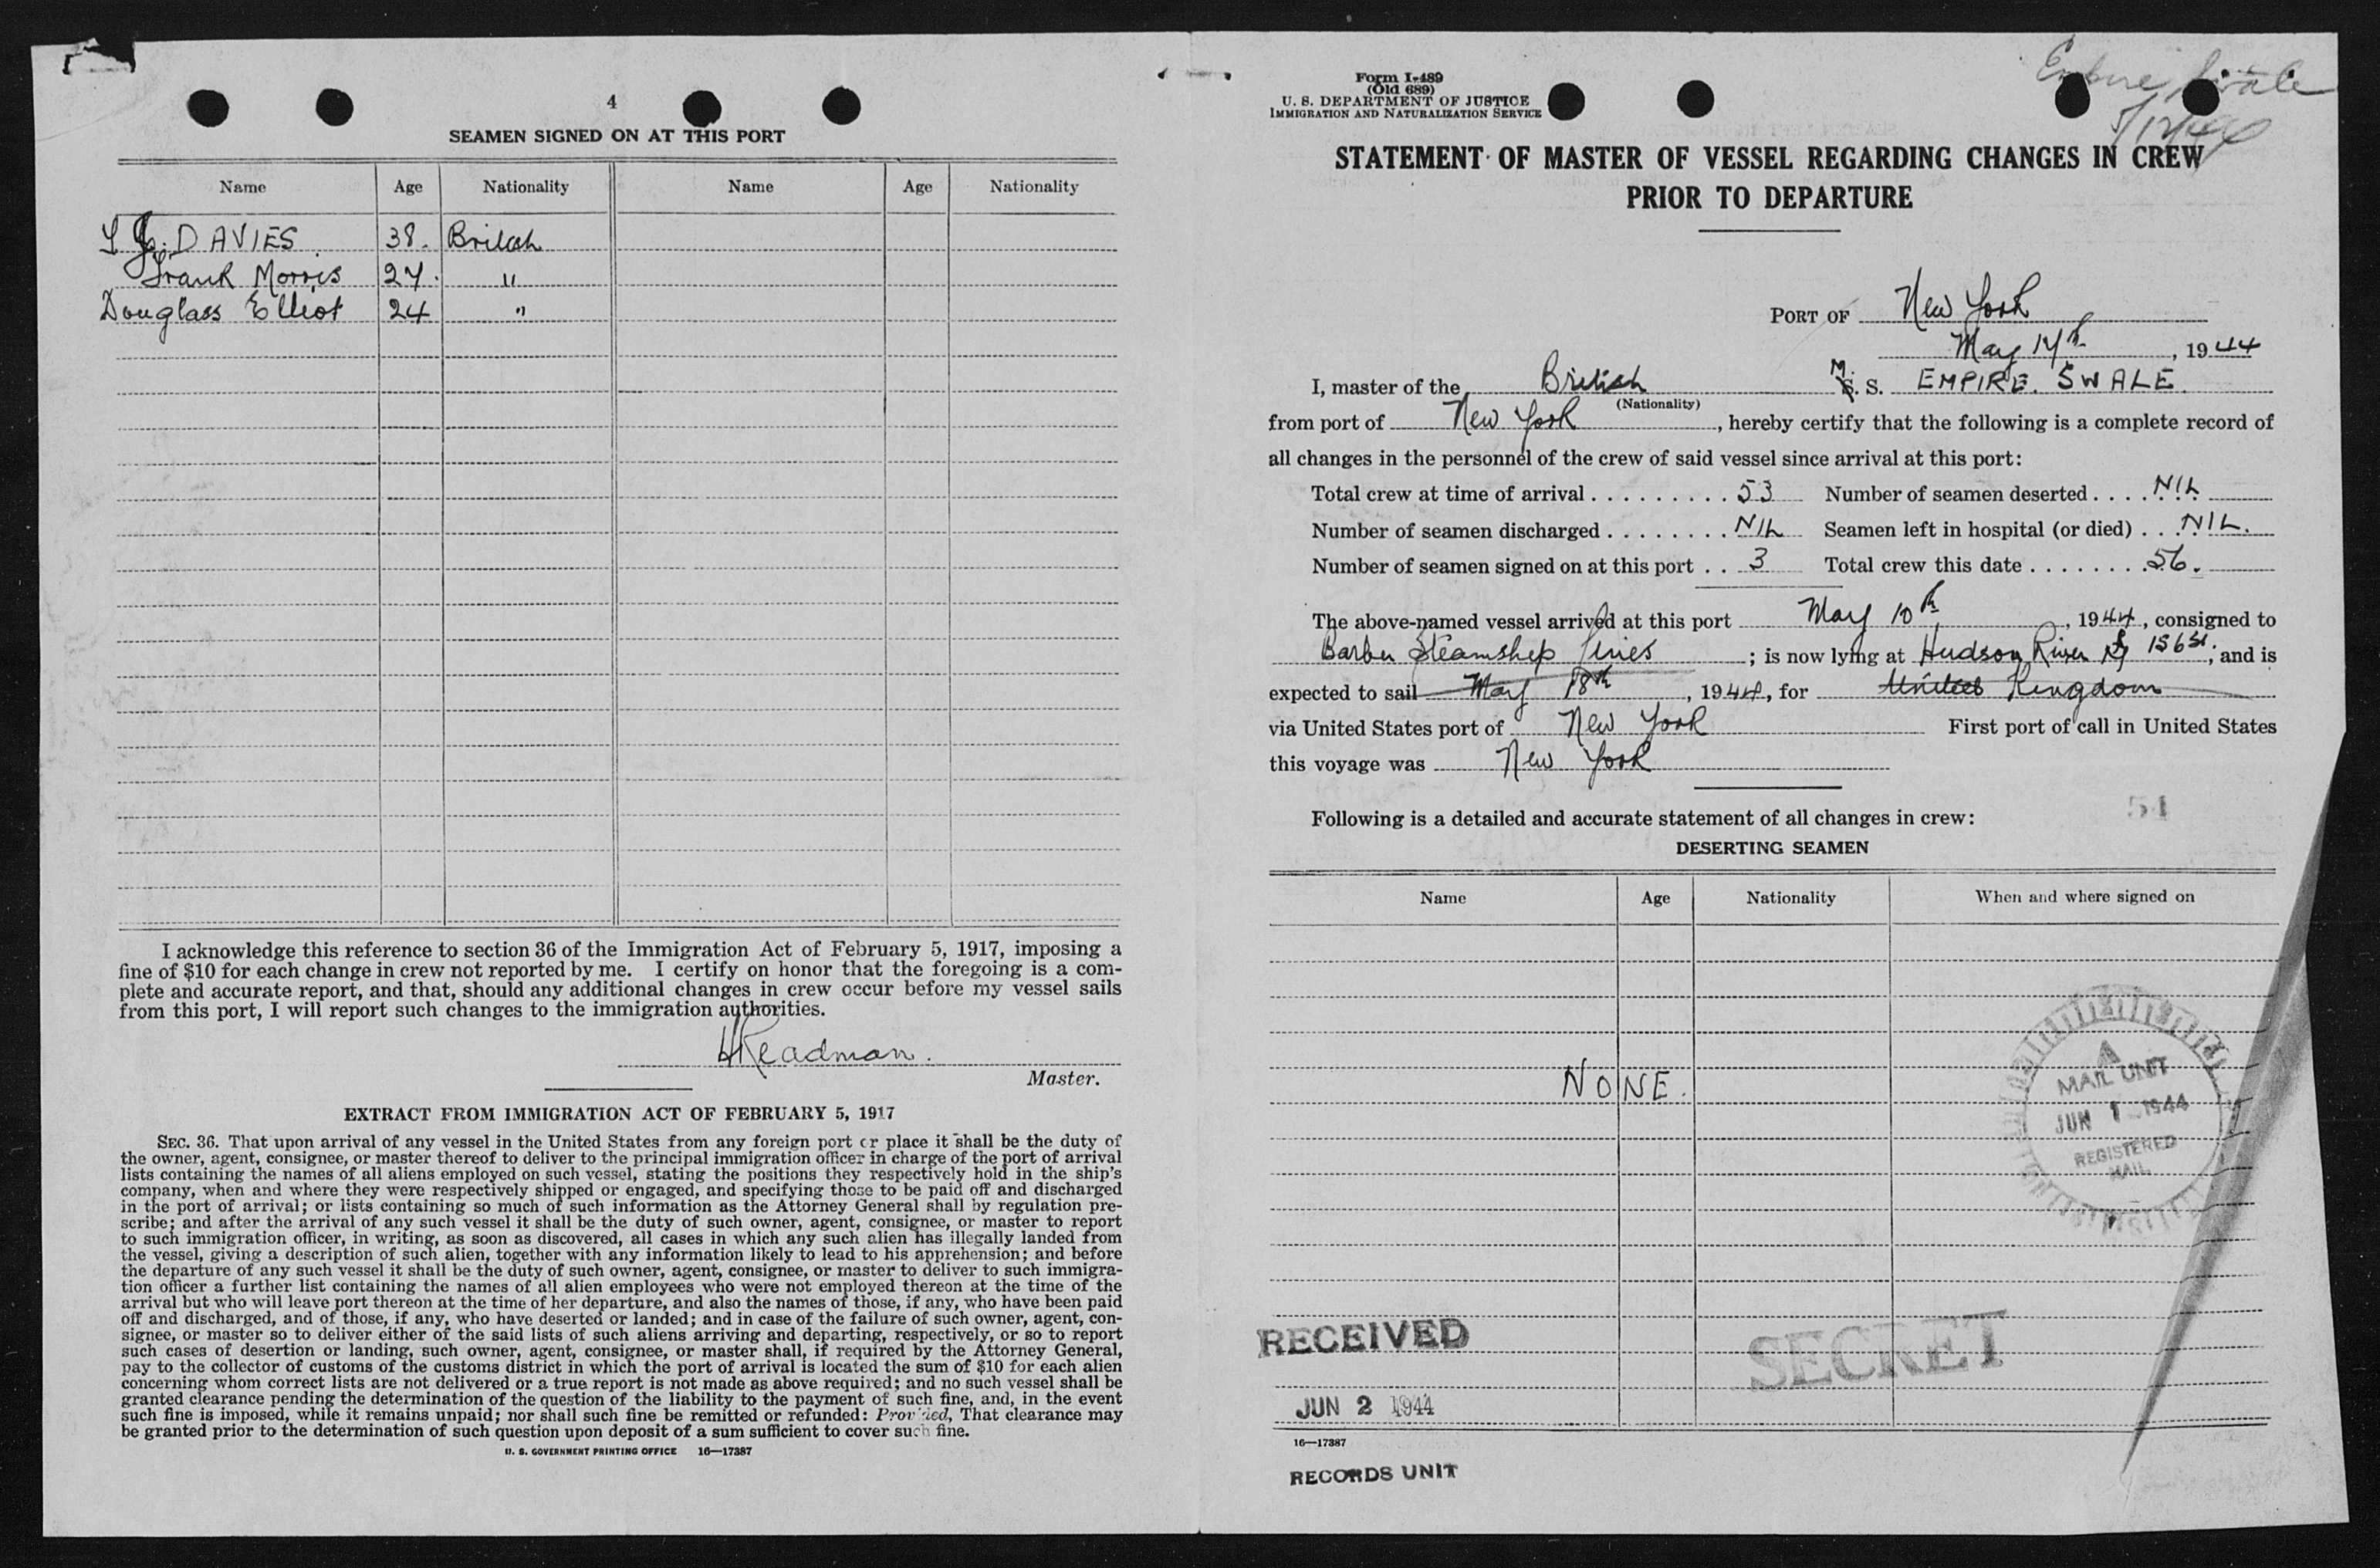 4
SEAMEN SIGNED ON AT THIS PORT
Name Age Nationality Name Age Nationality
DAVIES 38. British
Frank Morris 27. "
Douglass Elliot 24 "
I acknowledge this reference to section 36 of the Immigration Act of February 5, 1917, imposing a
fine of $10 for each change in crew not reported by me. I certify on honor that the foregoing is a com-
plete and accurate report, and that, should any additional changes in crew occur before my vessel sails
from this port, I will report such changes to the immigration authorities.
HReadman.
Master.
EXTRACT FROM IMMIGRATION ACT OF FEBRUARY 5, 1917
SEC. 36. That upon arrival of any vessel in the United States from any foreign port or place it shall be the duty of
the owner, agent, consignee, or master thereof to deliver to the principal immigration officer in charge of the port of arrival
lists containing the names of all aliens employed on such vessel, stating the positions they respectively hold in the ship's
company, when and where they were respectively shipped or engaged, and specifying those to be paid off and discharged
in the port of arrival; or lists containing so much of such information as the Attorney General shall by regulation pre-
scribe; and after the arrival of any such vessel it shall be the duty of such owner, agent, consignee, or master to report
to such immigration officer, in writing, as soon as discovered, all cases in which any such alien has illegally landed from
the vessel, giving a description of such alien, together with any information likely to lead to his apprehension; and before
the departure of any such vessel it shall be the duty of such owner, agent, consignee, or master to deliver to such immigra-
tion officer a further list containing the names of all alien employees who were not employed thereon at the time of the
arrival but who will leave port thereon at the time of her departure, and also the names of those, if any, who have been paid
off and discharged, and of those, if any, who have deserted or landed; and in case of the failure of such owner, agent, con-
signee, or master so to deliver either of the said lists of such aliens arriving and departing, respectively, or so to report
such cases of desertion or landing, such owner, agent, consignee, or master shall, if required by the Attorney General,
pay to the collector of customs of the customs district in which the port of arrival is located the sum of $10 for each alien
concerning whom correct lists are not delivered or a true report is not made as above required; and no such vessel shall be
granted clearance pending the determination of the question of the liability to the payment of such fine, and, in the event
such fine is imposed, while it remains unpaid; nor shall such fine be remitted or refunded: Provided, That clearance may
be granted prior to the determination of such question upon deposit of a sum sufficient to cover such fine.
U. S. GOVERNMENT PRINTING OFFICE 16—17387
Form I-489
(Old 689)
U. S. DEPARTMENT OF JUSTICE
IMMIGRATION AND NATURALIZATION SERVICE
Empire Swale
STATEMENT OF MASTER OF VESSEL REGARDING CHANGES IN CREW
PRIOR TO DEPARTURE
PORT OF New York
May 17th, 1944
I, master of the British M. S. S. EMPIRE. SWALE.
(Nationality)
from port of New York, hereby certify that the following is a complete record of
all changes in the personnel of the crew of said vessel since arrival at this port:
Total crew at time of arrival . . . . . . . . . 53 Number of seamen deserted . . . . NIL
Number of seamen discharged . . . . . . . . NIL Seamen left in hospital (or died) . . . NIL.
Number of seamen signed on at this port . . 3 Total crew this date . . . . . . . . 56.
The above-named vessel arrived at this port May 10th, 1944, consigned to
Barber Steamship Lines; is now lying at Hudson River 156 St.; and is
expected to sail May 18th, 1944, for United Kingdom
via United States port of New York First port of call in United States
this voyage was New York
51
Following is a detailed and accurate statement of all changes in crew:
DESERTING SEAMEN
Name Age Nationality When and where signed on
NONE.
A
MAIL UNIT
JUN 1 1944
REGISTERED
MAIL
RECEIVED
SECRET
JUN 2 1944
16—17387
RECORDS UNIT